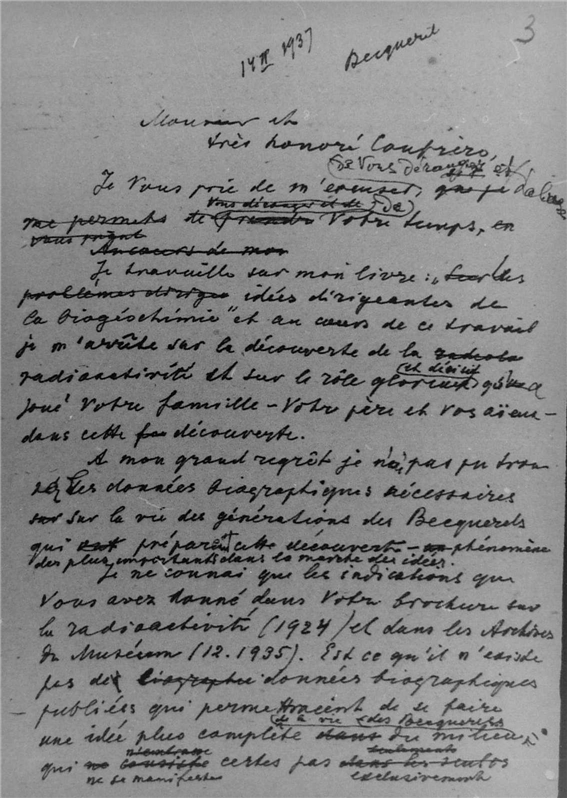 3
14 II 1937
Becquerel
Monsieur et
très honoré Confrère,
de Vous déranger et
Je Vous prie de m'excuser, que je
Vous déranger et de de
me permets de prendre Votre temps, en
vous priant
Au cours de mon
Je travaille sur mon livre: „Sur les
problèmes dirige idées dirigeantes de
la biogéochimie" et au cours de ce travail
je m'arrête sur la découverte de la
radioactivité et sur le rôle glorieux qu'a
et décisif
joué Votre famille – Votre père et Vos aïeux –
dans cette découverte.
A mon grand regrêt je n'ai pas pu trou
ver les données biographiques nécessaires
sur sur la vie des générations des Becquerels
qui ont préparé cette découverte – un phénomène
des plus importants dans la marche des idées.
Je ne connai que les indications que
Vous avez donné dans Votre brochure sur
la radioactivité (1924) et dans les Archives
du Muséum (12.1935). Est ce qu'il n'existe
pas des biographie données biographiques
publiés qui permettraient de se faire
de la vie des Becquerels
une idée plus complète dans du milieu,
qui ne consiste certes pas dans les
ne se manifeste exclusivement